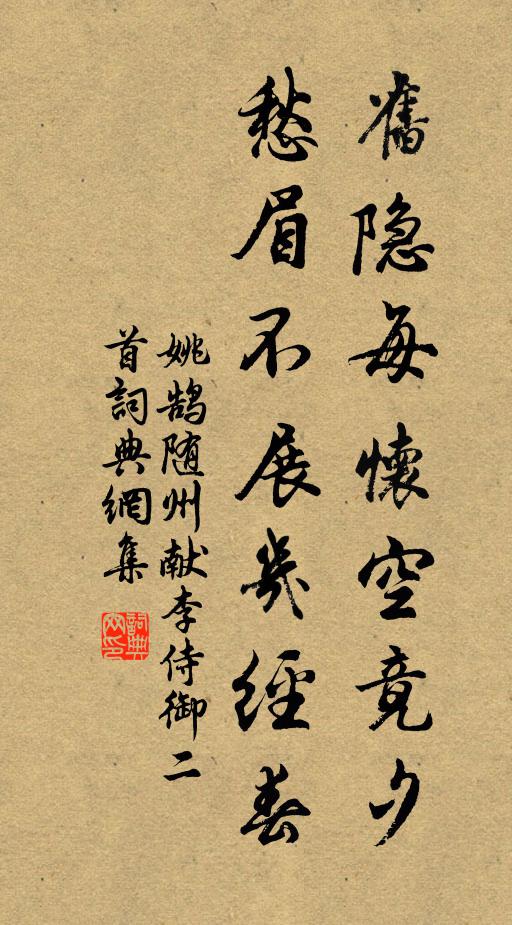 舊隐每懷空竟夕
愁眉不展幾經春
姚鹄随州献李侍御二
首詞典網集
詞典網印